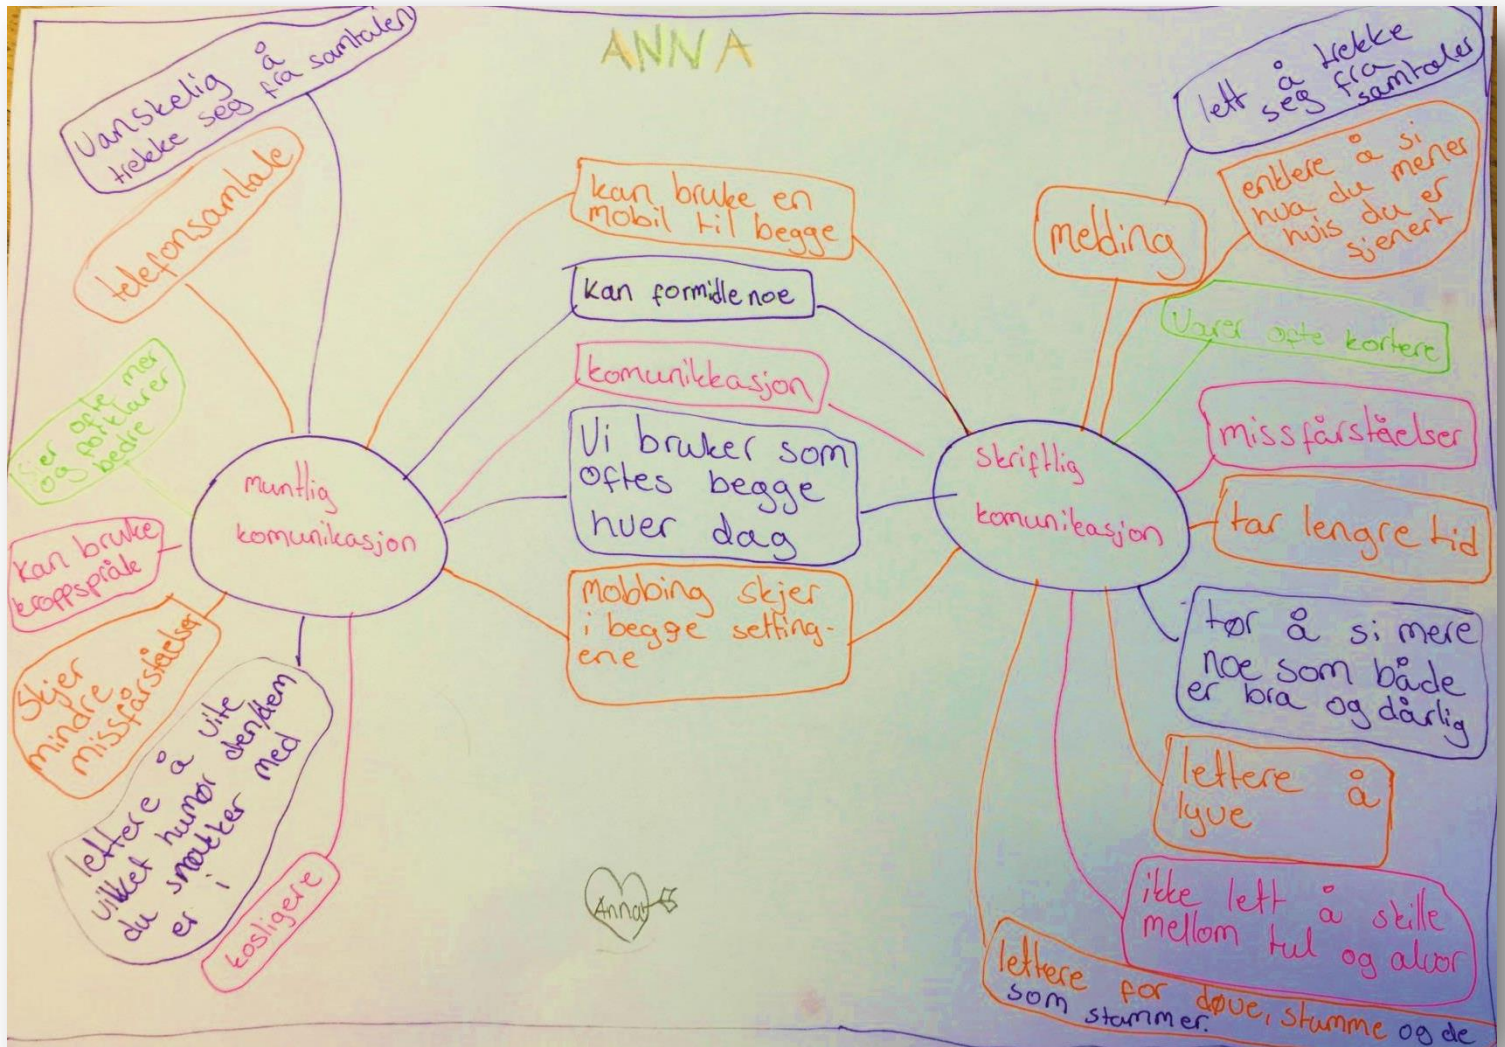 ANNA
Vanskelig å
trekke seg fra samtalen
telefonsamtale
Sier ofte mer
og forklarer
bedre
muntlig
komunikasjon
kan bruke
kroppspråk
Skjer
mindre
missfårståelser
lettere å vite
vilket humør den/dem
du snakker med
er i
kosligere
kan bruke en
mobil til begge
kan formidle noe
komunikkasjon
Vi bruker som
oftes begge
hver dag
Mobbing skjer
i begge setting-
ene
Anna
skriftlig
komunikasjon
lett å trekke
seg fra
samtaler
melding
enklere å si
hva du mener
hvis du er
sjenert
Varer ofte kortere
missfårståelser
tar lengre tid
tør å si mere
noe som både
er bra og dårlig
lettere å
lyve
ikke lett å skille
mellom tul og alvor
lettere for døve, stumme og de
som stammer.